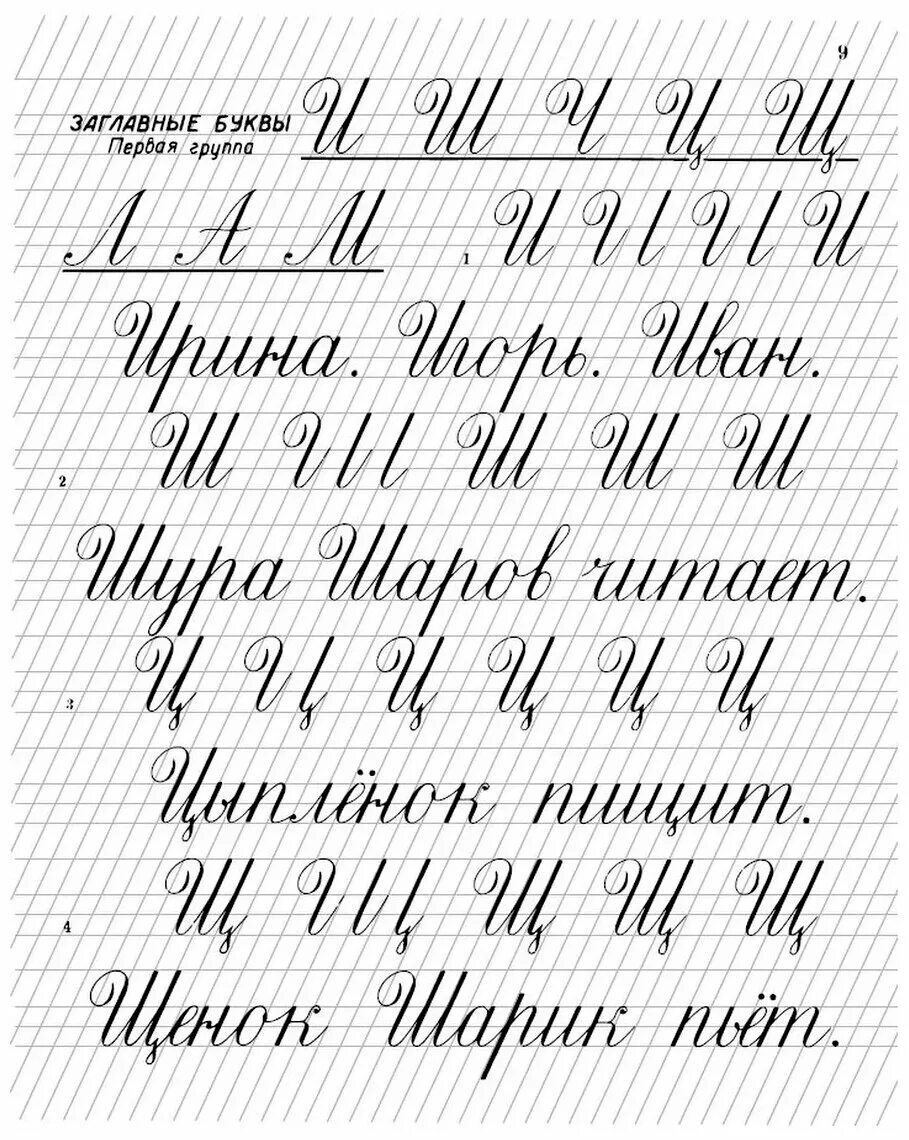 9
ЗАГЛАВНЫЕ БУКВЫ И Ш Ч Ц Щ
Первая группа
Л А М
1 И И И И
Ирина. Игорь. Иван.
2 Ш Ш Ш Ш Ш
Шура Шаров читает.
3 Ц Ц Ц Ц Ц Ц
Цыплёнок пищит.
4 Щ Щ Щ Щ Щ
Щенок Шарик пьёт.